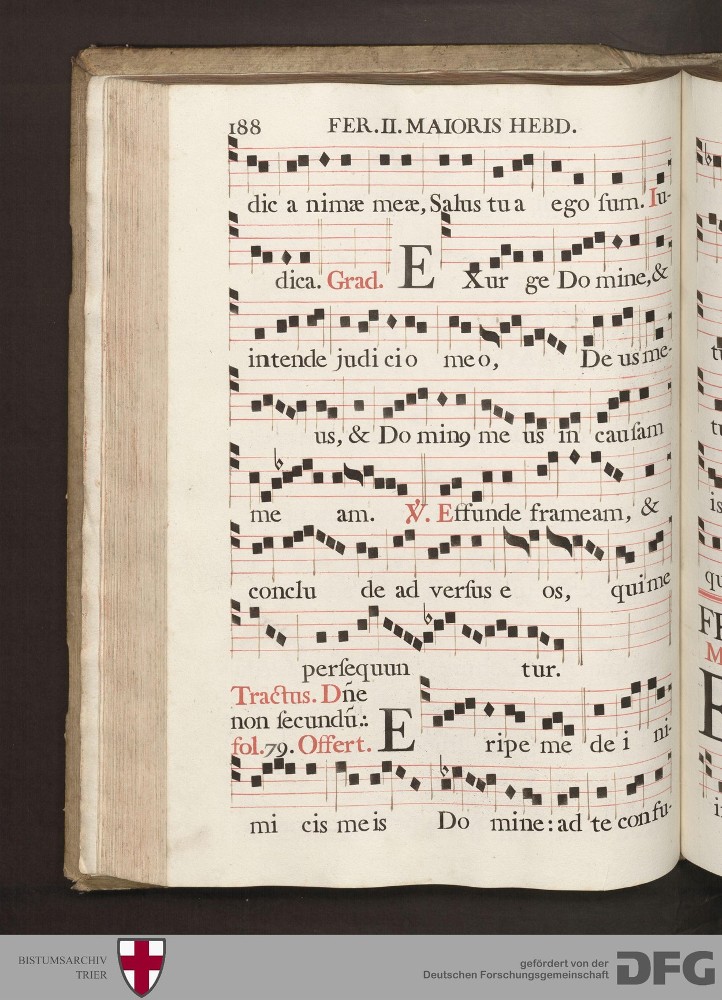 188 FER.II.MAIORIS HEBD.
dic a nimæ meæ, Salus tu a ego ſum. Iu-
dica. Grad. E Xur ge Do mine, &
intende judi cio me o, De us me-
us, & Do minꝰ me us in cauſam
me am. ℣. Effunde frameam, &
conclu de ad verſus e os, qui me
perſequun tur.
Tractus. Dñe
non ſecundũ.:
fol.79. Offert. E ripe me de i ni-
mi cis me is Do mine: ad te confu-
BISTUMSARCHIV
TRIER
gefördert von der
Deutschen Forschungsgemeinschaft
DFG